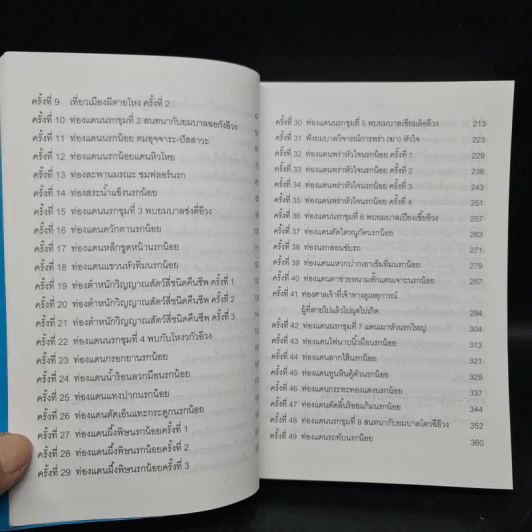 ครั้งที่ 9 เที่ยวเมืองผีตายโหง ครั้งที่ 2
ครั้งที่ 10 ท่องแดนนรกขุมที่ 2 สนทนากับยมบาลฉอกังอ๊วง
ครั้งที่ 11 ท่องแดนนรกน้อย ตมอุจจาระ-ปัสสาวะ
ครั้งที่ 12 ท่องแดนนรกน้อยแดนหิวโหย
ครั้งที่ 13 ท่องสะพานมรณะ ชมฟลอร์นรก
ครั้งที่ 14 ท่องสระน้ำแข็งนรกน้อย
ครั้งที่ 15 ท่องแดนนรกขุมที่ 3 พบยมบาลซ่งตี่อ๊วง
ครั้งที่ 16 ท่องแดนควักตานรกน้อย
ครั้งที่ 17 ท่องแดนเหล็กขูดหน้านรกน้อย
ครั้งที่ 18 ท่องแดนแขวนหัวทิ่มนรกน้อย
ครั้งที่ 19 ท่องตำหนักวิญญาณสัตว์สี่ชนิดคืนชีพ ครั้งที่ 1
ครั้งที่ 20 ท่องตำหนักวิญญาณสัตว์สี่ชนิดคืนชีพ ครั้งที่ 2
ครั้งที่ 21 ท่องตำหนักวิญญาณสัตว์สี่ชนิดคืนชีพ ครั้งที่ 3
ครั้งที่ 22 ท่องแดนนรกขุมที่ 4 พบกับโหงวกัวอ๊วง
ครั้งที่ 23 ท่องแดนกรอกยานรกน้อย
ครั้งที่ 24 ท่องแดนน้ำร้อนลวกมือนรกน้อย
ครั้งที่ 25 ท่องแดนแทงปากนรกน้อย
ครั้งที่ 26 ท่องแดนตัดเอ็นแทะกระดูกนรกน้อย
ครั้งที่ 27 ท่องแดนผึ้งพิษนรกน้อยครั้งที่ 1
ครั้งที่ 28 ท่องแดนผึ้งพิษนรกน้อยครั้งที่ 2
ครั้งที่ 29 ท่องแดนผึ้งพิษนรกน้อยครั้งที่ 3
ครั้งที่ 30 ท่องแดนนรกขุมที่ 5 พบยมบาลเซียมล้ออ๊วง 213
ครั้งที่ 31 ฟังยมบาลวิจารณ์การพร่า (ฆ่า) หัวใจ 223
ครั้งที่ 32 ท่องแดนพร่าหัวใจนรกน้อย ครั้งที่ 1 229
ครั้งที่ 33 ท่องแดนพร่าหัวใจนรกน้อย ครั้งที่ 2 236
ครั้งที่ 34 ท่องแดนพร่าหัวใจนรกน้อย ครั้งที่ 3 243
ครั้งที่ 35 ท่องแดนพร่าหัวใจนรกน้อย ครั้งที่ 4 251
ครั้งที่ 36 ท่องแดนนรกขุมที่ 6 พบยมบาลเปียงเซี้ยอ๊วง 257
ครั้งที่ 37 ท่องแดนตัดไตหนูกัดนรกน้อย 263
ครั้งที่ 38 ท่องนรกสอนขับรถ 271
ครั้งที่ 39 ท่องแดนแหวกปากเอาเข็มทิ่มนรกน้อย 279
ครั้งที่ 40 ท่องแดนตาข่ายหนามตั๊กแตนเจาะนรกน้อย 287
ครั้งที่ 41 ท่องศาลเจ้าที่เจ้าทางดูเหตุการณ์
ผู้ที่ตายไปแล้วไปผุดไปเกิด 294
ครั้งที่ 42 ท่องแดนนรกขุมที่ 7 แดนเผาหัวนรกใหญ่ 304
ครั้งที่ 43 ท่องแดนไฟนาบนิ้วมือนรกน้อย 313
ครั้งที่ 44 ท่องแดนลากไส้นรกน้อย 321
ครั้งที่ 45 ท่องแดนทูนหินคู้ตัวนรกน้อย 329
ครั้งที่ 46 ท่องแดนกระทะทองแดงนรกน้อย 337
ครั้งที่ 47 ท่องแดนตัดลิ้นร้อยแก้มนรกน้อย 344
ครั้งที่ 48 ท่องแดนนรกขุมที่ 8 สนทนากับยมบาลโตวฉีอ๊วง 352
ครั้งที่ 49 ท่องแดนรถทับนรกน้อย 360